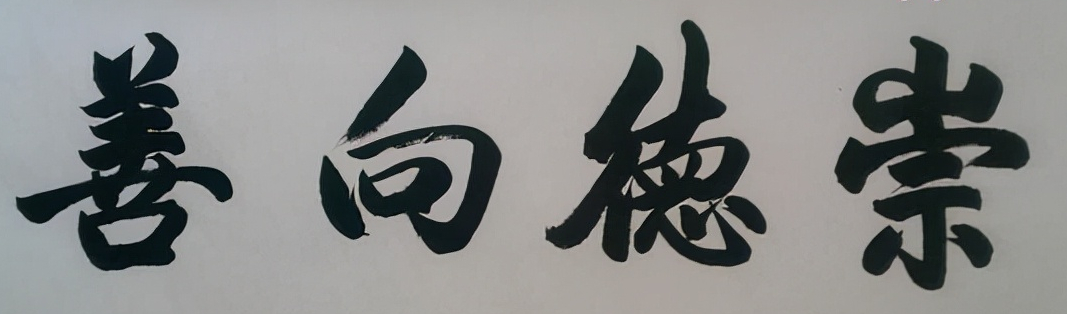 崇德向善